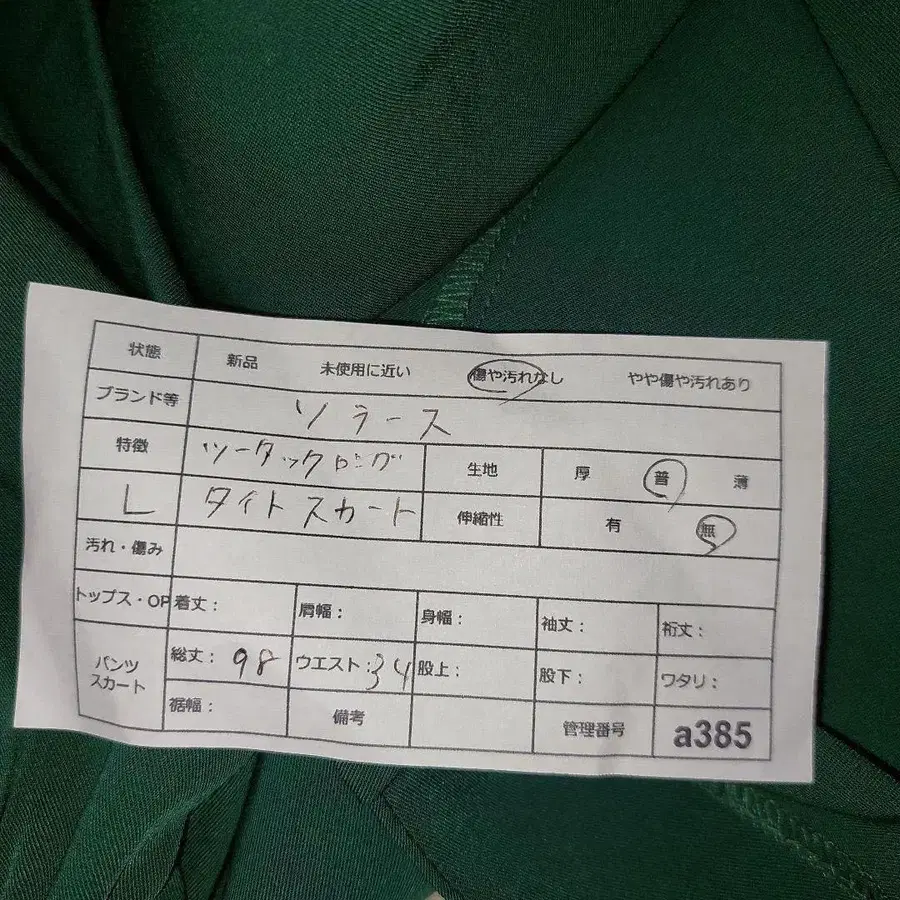 状態 新品 未使用に近い 傷や汚れなし やや傷や汚れあり
ブランド等 ソラース
特徴 ツータックロング 生地 厚 普 薄
L タイトスカート 伸縮性 有 無
汚れ・傷み
トップス・OP 着丈： 肩幅： 身幅： 袖丈： 裄丈：
パンツ スカート 総丈：98 ウエスト：34 股上： 股下： ワタリ：
裾幅： 備考 管理番号 a385